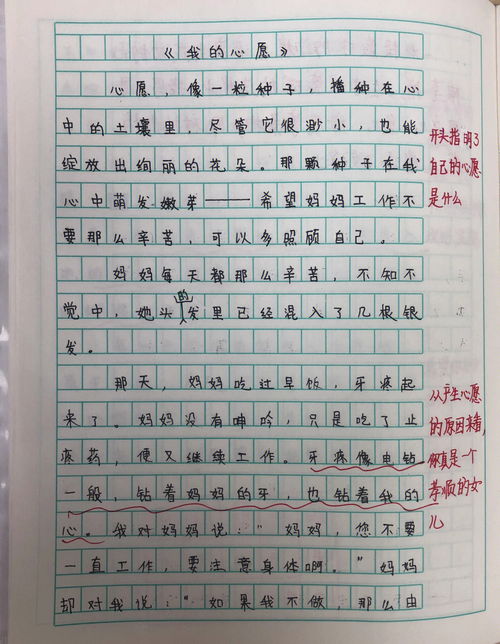 《我的心愿》
心愿，像一粒种子，播种在心
中的土壤里，尽管它很渺小，也能
绽放出绚丽的花朵。那颗种子在我
心中萌发嫩芽——希望妈妈工作不
要那么辛苦，可以多照顾自己。
妈妈每天都那么辛苦，不知不
觉中，她头的发里已经混入了几根银
发。
那天，妈妈吃过早饭，牙疼起
来了。妈妈没有呻吟，只是吃了止
疼药，便又继续工作。牙疼像电钻
一般，钻着妈妈的牙，也钻着我的
心。我对妈妈说：“妈妈，您不要
一直工作，要注意身体啊。”妈妈
却对我说：“如果我不做，那么由
开头指明了
自己的心愿
是什么
从产生心愿
的原因来看，
你真是一个
孝顺的女
儿